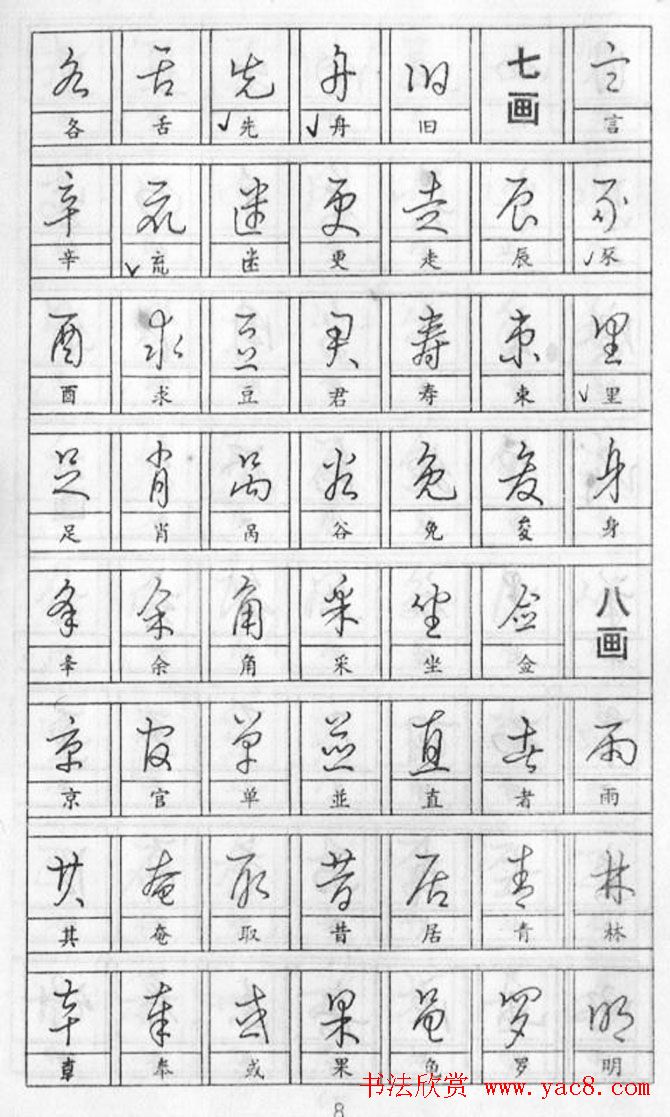 各 舌 先 舟 旧 七画 言
辛 㐬 迷 更 走 辰 豕
酉 求 豆 君 寿 束 里
足 肖 呙 谷 免 夋 身
夆 余 角 采 坐 佥 八画
京 官 单 並 直 者 雨
其 奄 取 昔 居 青 林
奉 或 果 兔 罗 明
书法欣赏 www.yac8.com
8